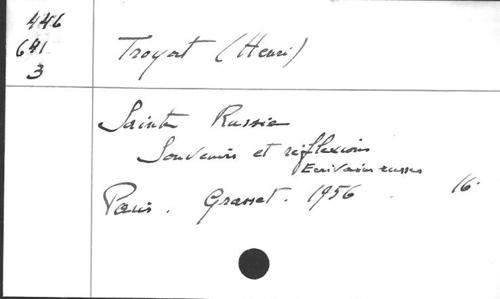 446
641
3
Troyat (Henri)
Sainte Russie
Souvenirs et réflexions
Ecrivains russes
Paris. Grasset. 1956. 16°